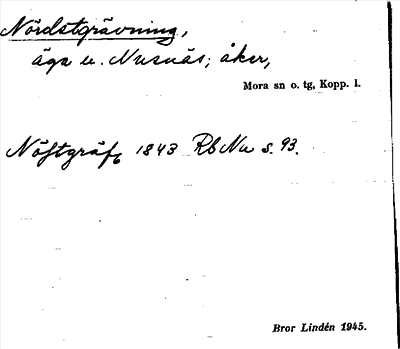 Nördstgrävning,
äga u. Nusnäs; åker,
Mora sn o. tg, Kopp. l.
1843 Rb Nu s. 93.
Bror Lindén 1945.